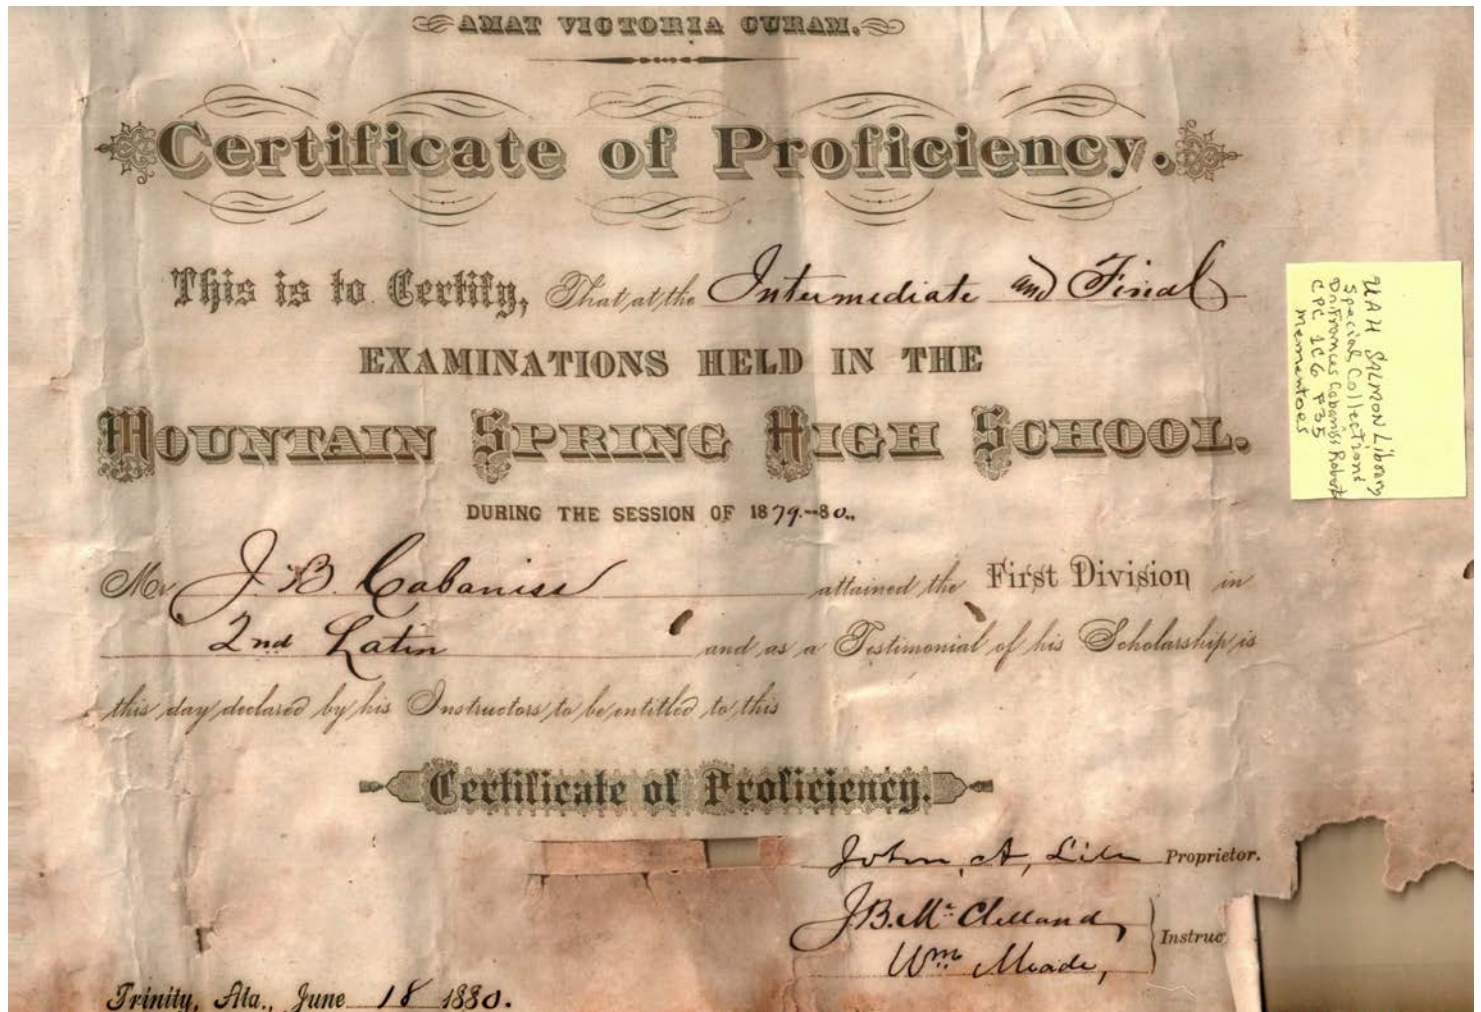 AMAT VICTORIA CURAM.
Certificate of Proficiency.
This is to Certify, That at the Intermediate and Final
EXAMINATIONS HELD IN THE
MOUNTAIN SPRING HIGH SCHOOL.
DURING THE SESSION OF 1879.--80.,
Mr J. B. Cabaniss attained the First Division in
2nd Latin and as a Testimonial of his Scholarship is
this day declared by his Instructors to be entitled to this
Certificate of Proficiency.
John A, Proprietor.
J. B. McClelland,
Instruc
Wm Meade,
Trinity, Ala., June 18 1880.
UAH SALMON Library
Special Collections
Dr Frances Cabaniss Roberts
CPC 1C6 F35
mementoes